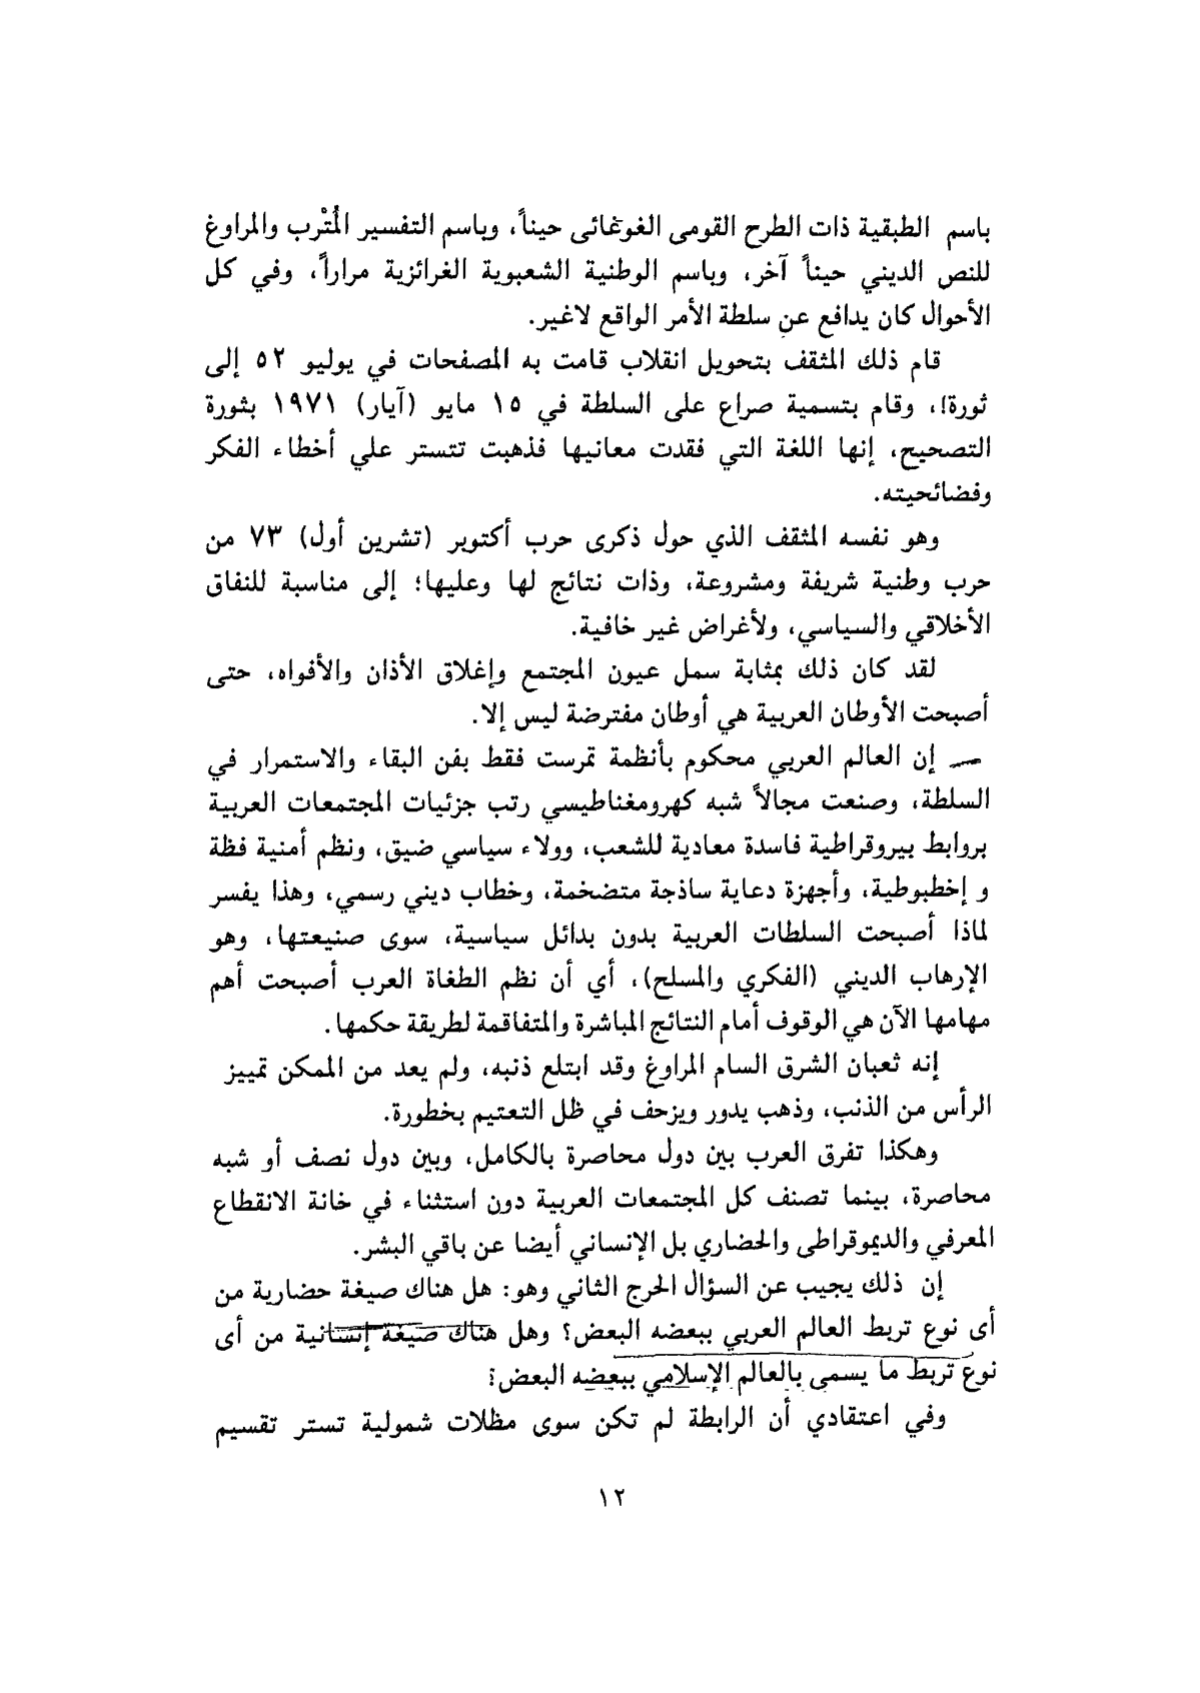 باسم الطبقية ذات الطرح القومى الغوغائى حيناً، وباسم التفسير المُتْرب والمراوغ
للنص الديني حيناً آخر، وباسم الوطنية الشعبوية الغرائزية مراراً، وفي كل
الأحوال كان يدافع عن سلطة الأمر الواقع لاغير.
قام ذلك المثقف بتحويل انقلاب قامت به المصفحات في يوليو ٥٢ إلى
ثورة!، وقام بتسمية صراع على السلطة في ١٥ مايو (آيار) ١٩٧١ بثورة
التصحيح، إنها اللغة التي فقدت معانيها فذهبت تتستر علي أخطاء الفكر
وفضائحيته.
وهو نفسه المثقف الذي حول ذكرى حرب أكتوبر (تشرين أول) ٧٣ من
حرب وطنية شريفة ومشروعة، وذات نتائج لها وعليها؛ إلى مناسبة للنفاق
الأخلاقي والسياسي، ولأغراض غير خافية.
لقد كان ذلك بمثابة سمل عيون المجتمع وإغلاق الأذان والأفواه، حتى
أصبحت الأوطان العربية هي أوطان مفترضة ليس إلا.
إن العالم العربي محكوم بأنظمة تمرست فقط بفن البقاء والاستمرار في
السلطة، وصنعت مجالاً شبه كهرومغناطيسي رتب جزئيات المجتمعات العربية
بروابط بيروقراطية فاسدة معادية للشعب، وولاء سياسي ضيق، ونظم أمنية فظة
و إخطبوطية، وأجهزة دعاية ساذجة متضخمة، وخطاب ديني رسمي، وهذا يفسر
لماذا أصبحت السلطات العربية بدون بدائل سياسية، سوى صنيعتها، وهو
الإرهاب الديني (الفكري والمسلح)، أي أن نظم الطغاة العرب أصبحت أهم
مهامها الآن هي الوقوف أمام النتائج المباشرة والمتفاقمة لطريقة حكمها.
إنه ثعبان الشرق السام المراوغ وقد ابتلع ذنبه، ولم يعد من الممكن تمييز
الرأس من الذنب، وذهب يدور ويزحف في ظل التعتيم بخطورة.
وهكذا تفرق العرب بين دول محاصرة بالكامل، وبين دول نصف أو شبه
محاصرة، بينما تصنف كل المجتمعات العربية دون استثناء في خانة الانقطاع
المعرفي والديموقراطى والحضاري بل الإنساني أيضا عن باقي البشر.
إن ذلك يجيب عن السؤال الحرج الثاني وهو: هل هناك صيغة حضارية من
أى نوع تربط العالم العربي ببعضه البعض؟ وهل هناك صيغة إنسانية من أى
نوع تربط ما يسمى بالعالم الإسلامي ببعضه البعض؟
وفي اعتقادي أن الرابطة لم تكن سوى مظلات شمولية تستر تقسيم
١٢